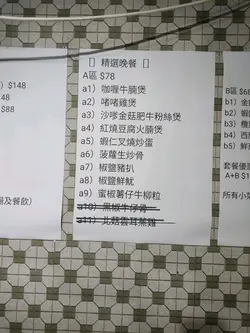 $148
88
48
湯及餐飲）
[] 精選晚餐 []
A區 $78
a1）咖喱牛腩煲
a2）啫啫雞煲
a3）沙嗲金菇肥牛粉絲煲
a4）紅燒豆腐火腩煲
a5）蝦仁叉燒炒蛋
a6）菠蘿生炒骨
a7）椒鹽豬扒
a8）椒鹽鮮魷
a9）蜜椒薯仔牛柳粒
a10）黑椒牛仔骨
a11）北菇雲耳蒸雞
B區 $68
b1）金
b2）蝦
b4）
b5）鮮
套餐優
A+B $1
所有小菜